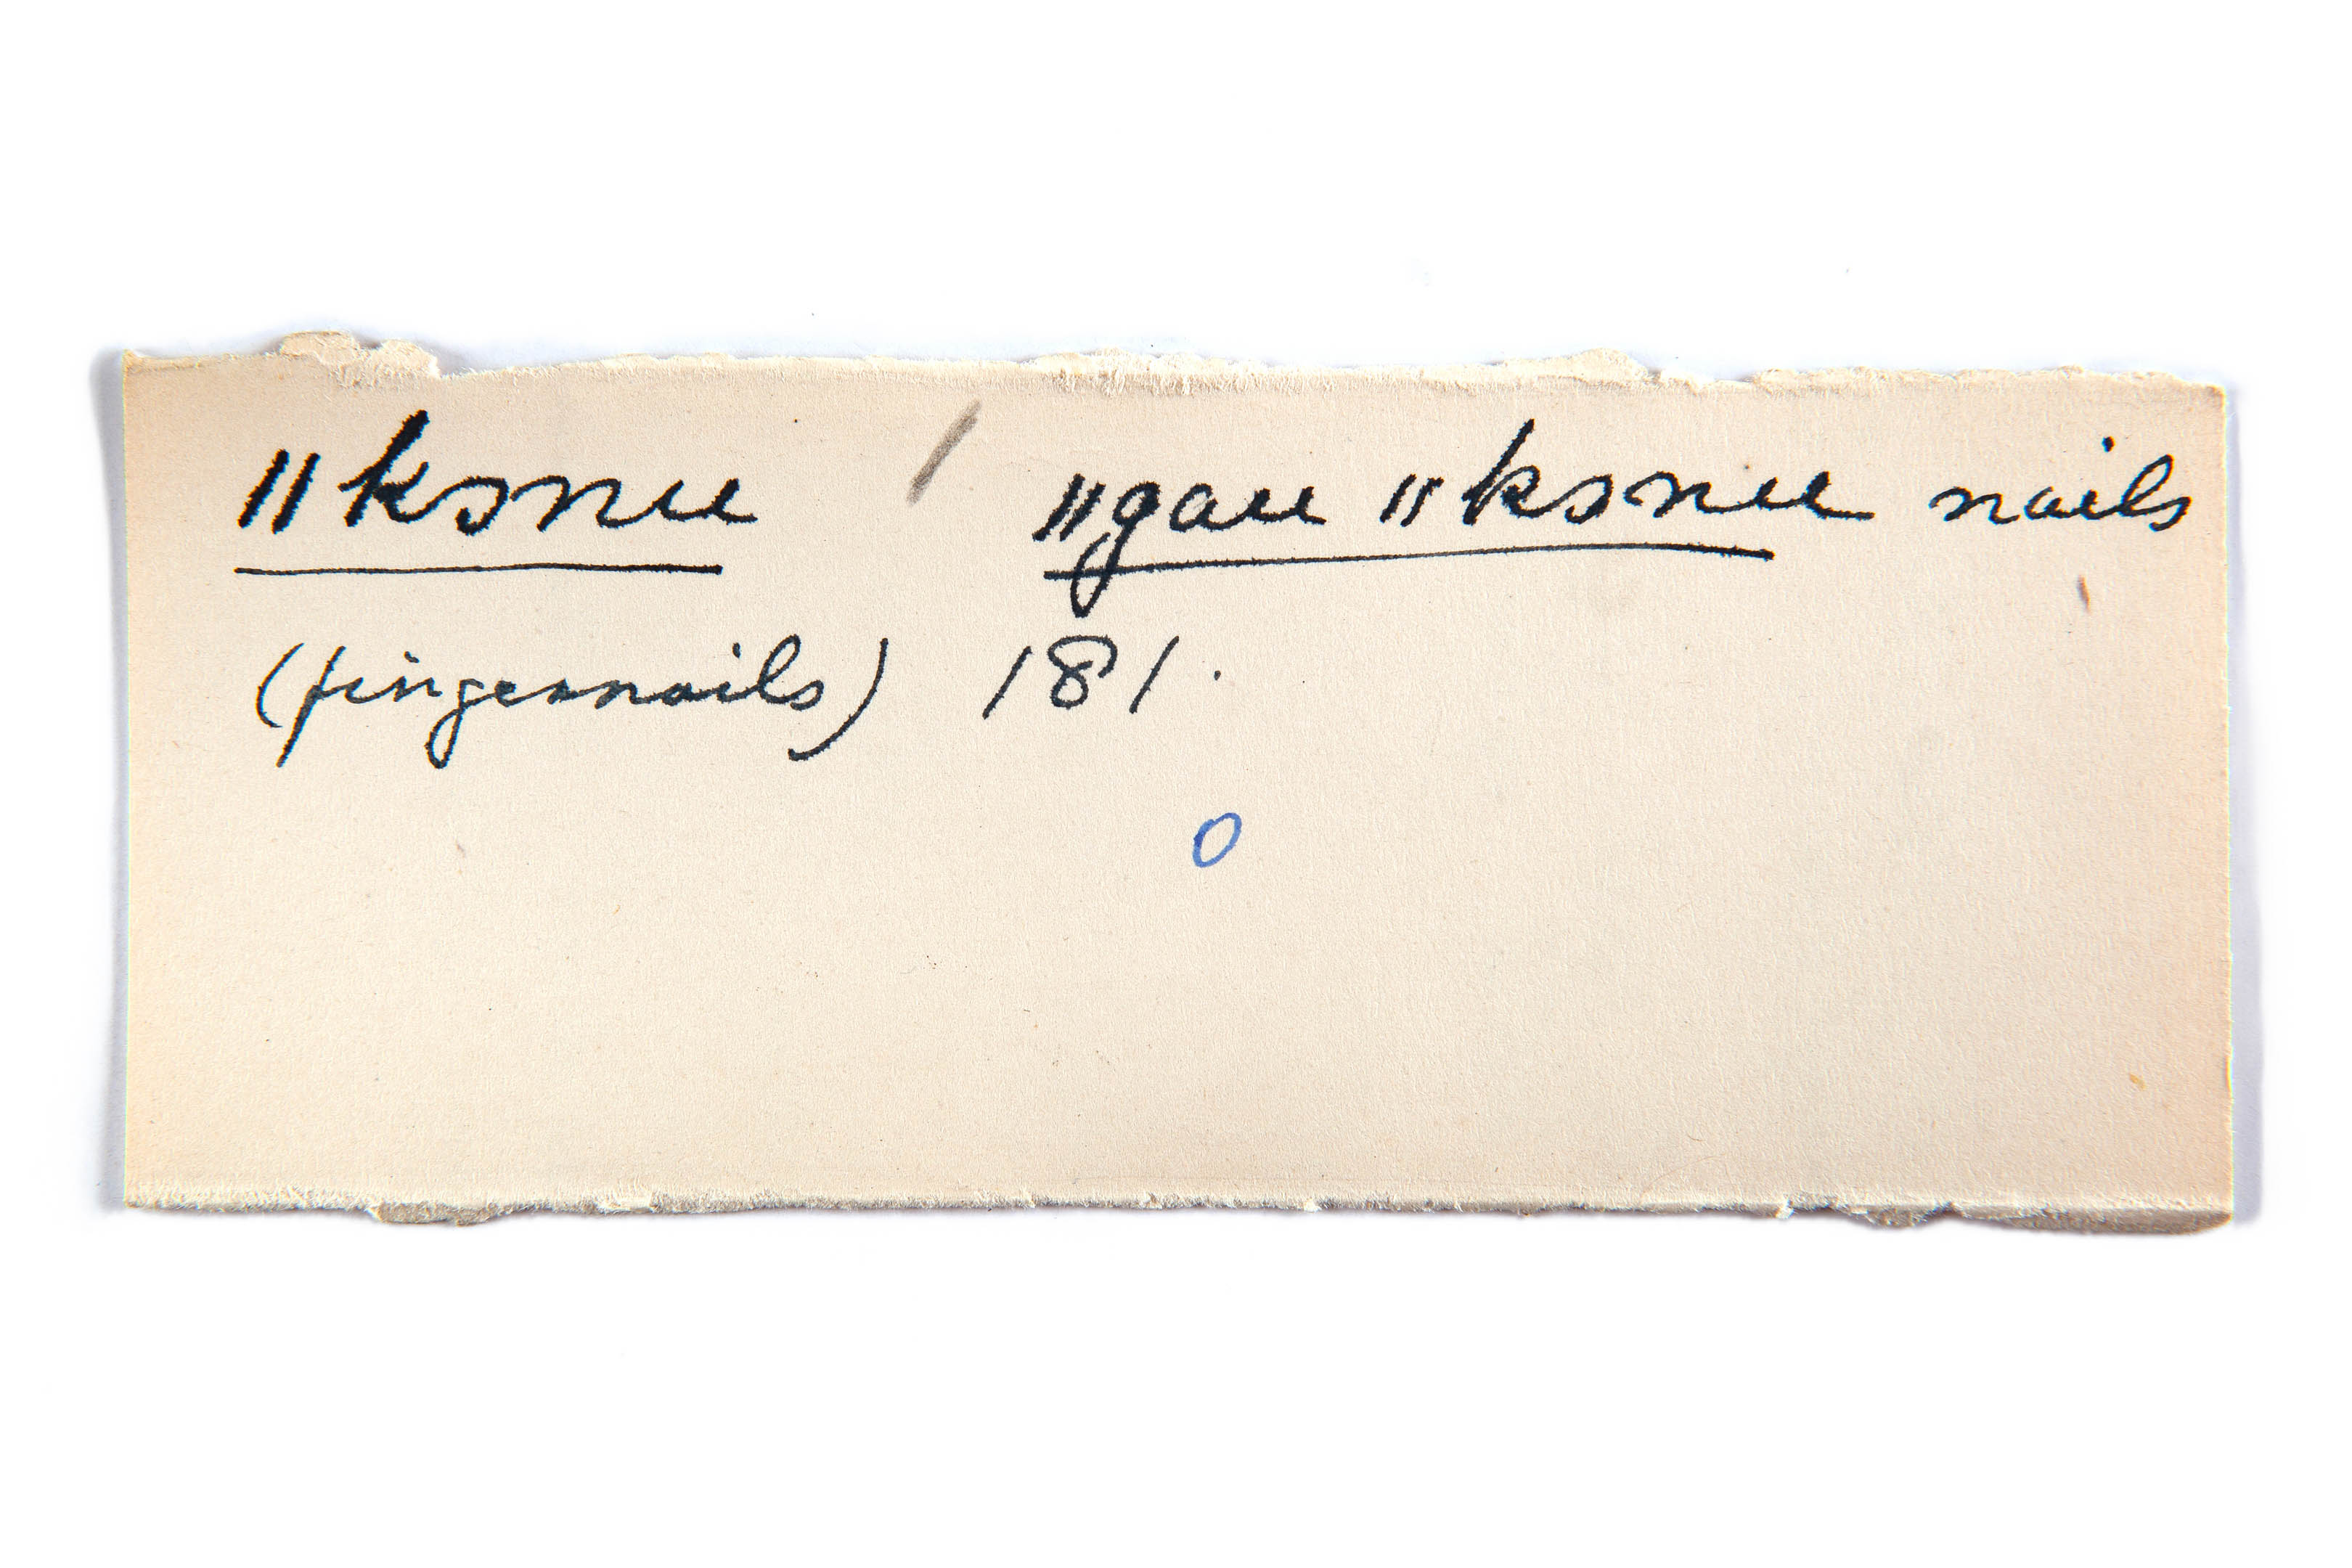 ǁkɔnu ǁgau ǁkɔnu nails
(fingernails) 181.
0